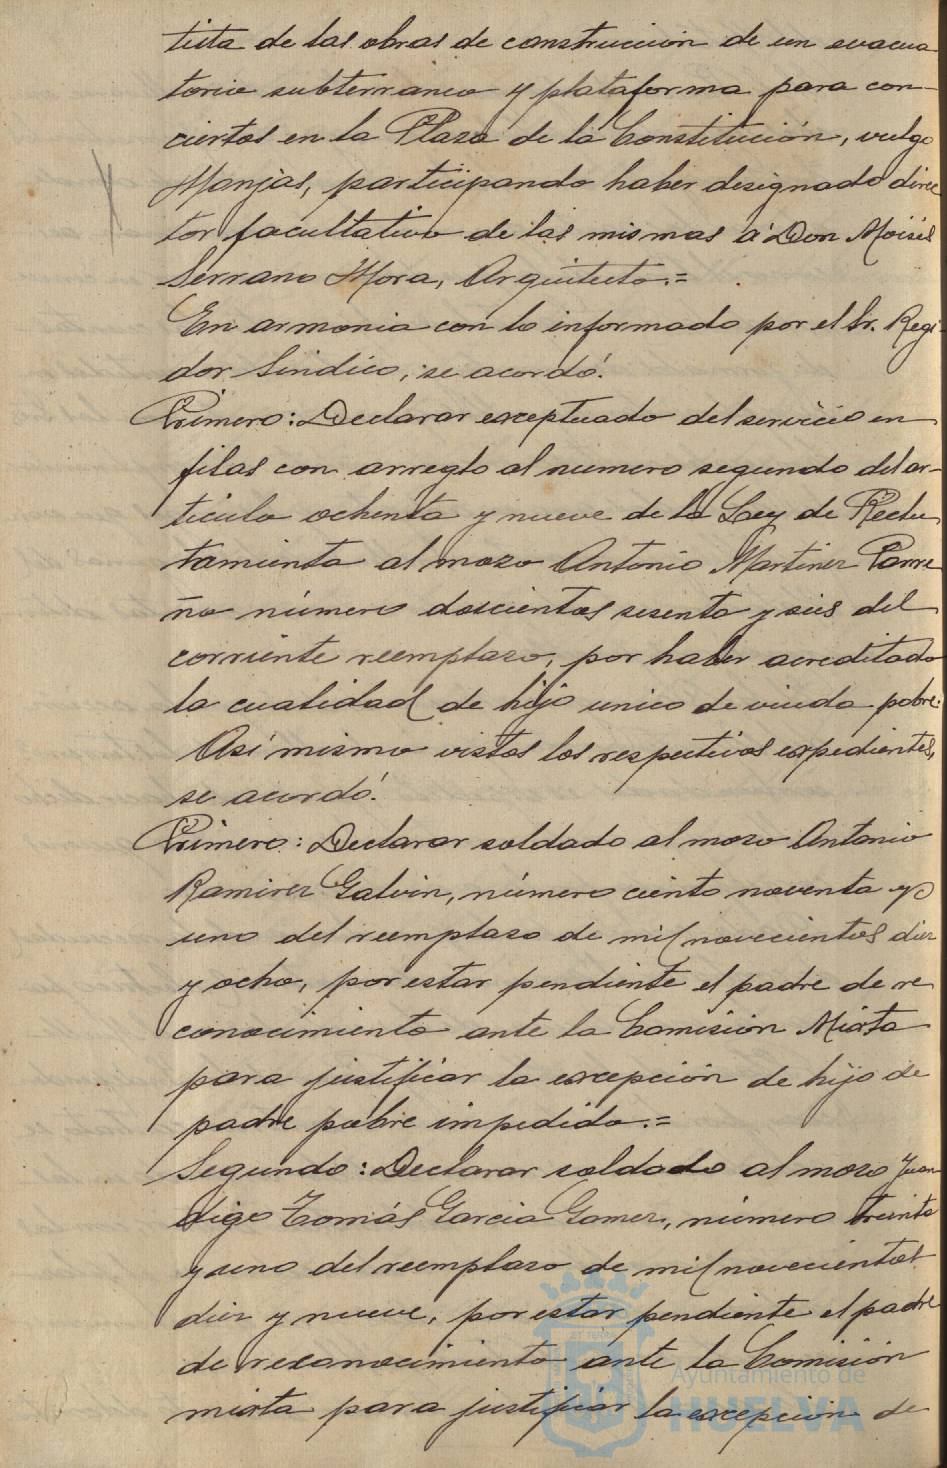 tista de las obras de construccion de un evacua
torio subterraneo y plataforma para con-
ciertos en la Plaza de la Constitución, vulgo
Monjas, participando haber designado direc
tor facultativo de las mismas á Don Moisés
Serrano Mora, Arquitecto.=
En armonia con lo informado por el Sr. Regi-
dor Sindico, se acordó:
Primero: Declarar exceptuado del servicio en
filas con arreglo al numero segundo del ar-
ticulo ochenta y nueve de la Ley de Reclu
tamiento al mozo Antonio Martinez Parre
ño número doscientos sesenta y seis del
corriente reemplazo, por haber acreditado
la cualidad de hijo unico de viuda pobre.
Asi mismo vistos los respectivos expedientes,
se acordó:
Primero: Declarar soldado al mozo Antonio
Ramirez Galvin, número ciento noventa y
uno del reemplazo de mil novecientos diez
y ocho, por estar pendiente el padre de re
conocimiento ante la Comisión Mixta
para justificar la excepción de hijo de
padre pobre impedido.=
Segundo: Declarar soldado al mozo Juan
digo Tomás Garcia Gomez, número treinta
y uno del reemplazo de mil novecientos
diez y nueve, por estar pendiente el padre
de reconocimiento ante la Comisión
mixta para justificar la excepcion de
Ayuntamiento de
HUELVA